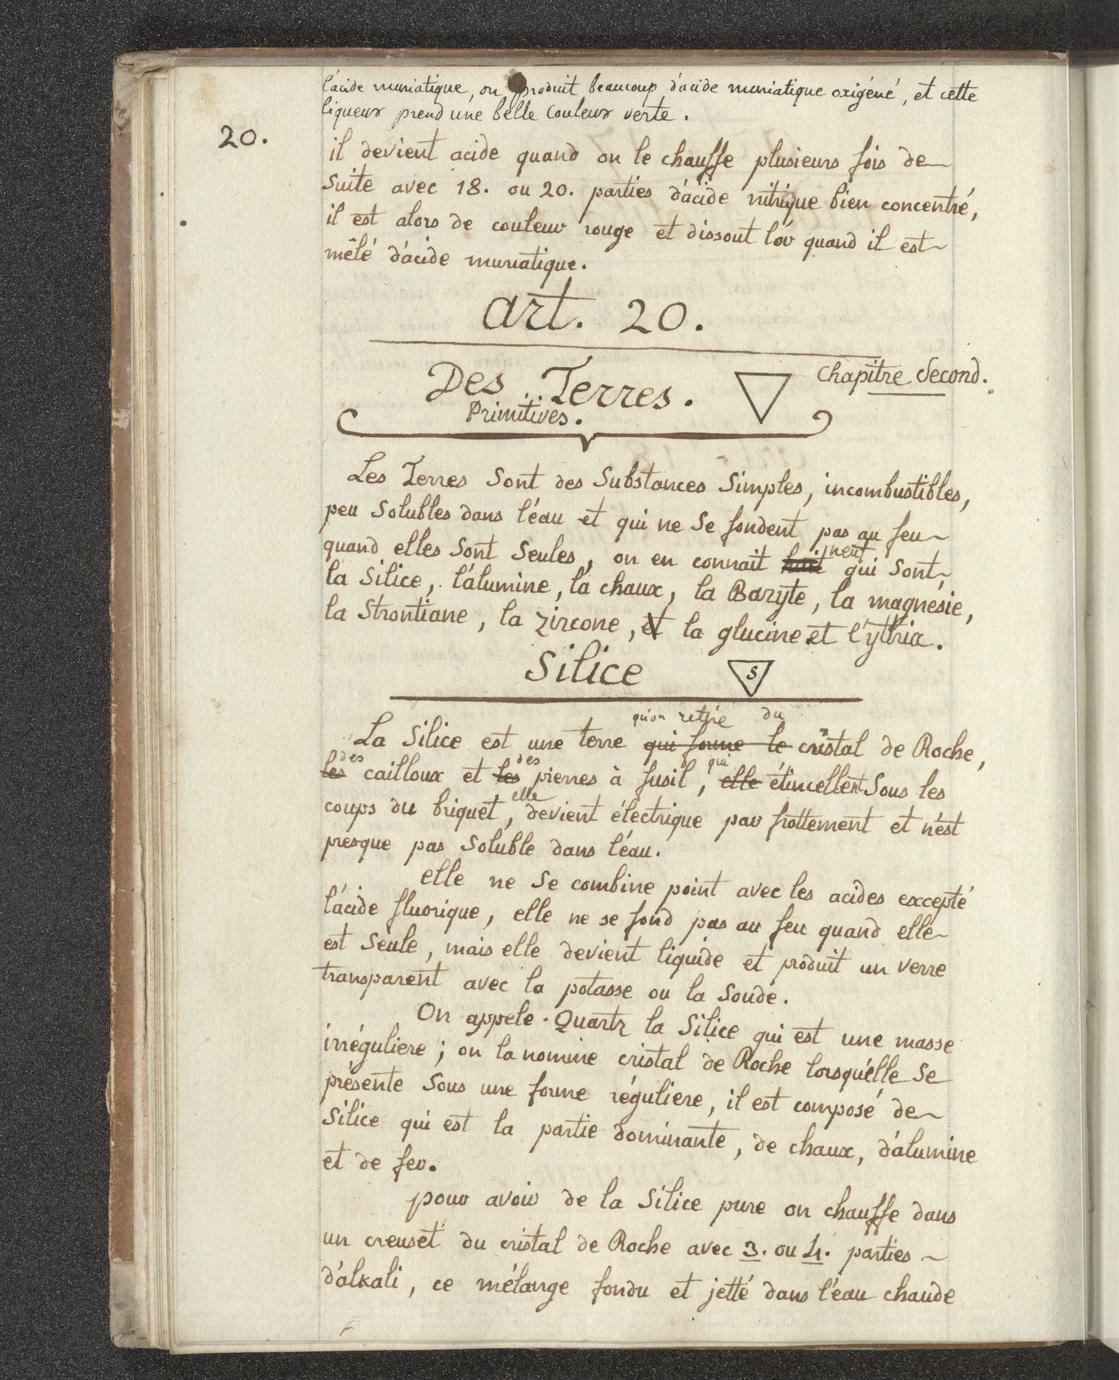 l'acide muriatique, on produit beaucoup d'acide muriatique oxigéné, et cette
liqueur prend une belle couleur verte.
20.
il devient acide quand on le chauffe plusieurs fois de
suite avec 18. ou 20. parties d'acide nitrique bien concentré,
il est alors de couleur rouge et dissout l'or quand il est
mêlé d'acide muriatique.
art. 20.
Chapitre Second.
Des Terres.
Primitives.
Les Terres Sont des Substances Simples, incombustibles,
peu Solubles dans l'éau et qui ne Se fondent pas au feu
quand elles Sont Seules, on en connait huit neuf qui Sont,
la Silice, l'alumine, la chaux, la Baryte, la magnésie,
la Strontiane, la zircone, et la glucine et l'ytria.
Silice S
qu'on retire du
La Silice est une terre qui forme le cristal de Roche,
des des qui
les cailloux et les pierres à fusil, elle étincellent Sous les
elle
coups du briquet, devient électrique par frottement et n'est
presque pas Soluble dans l'éau.
elle ne Se combine point avec les acides excepté
l'acide fluorique, elle ne se fond pas au feu quand elle
est Seule, mais elle devient liquide et produit un verre
transparent avec la potasse ou la Soude.
On appele Quartz la Silice qui est une masse
irréguliere; on la nomme cristal de Roche lorsqu'elle Se
présente Sous une forme réguliere, il est composé de
Silice qui est la partie dominante, de chaux, d'alumine
et de fer.
pour avoir de la Silice pure on chauffe dans
un creuset du cristal de Roche avec 3. ou 4. parties
d'alkali, ce mélange fondu et jetté dans l'éau chaude